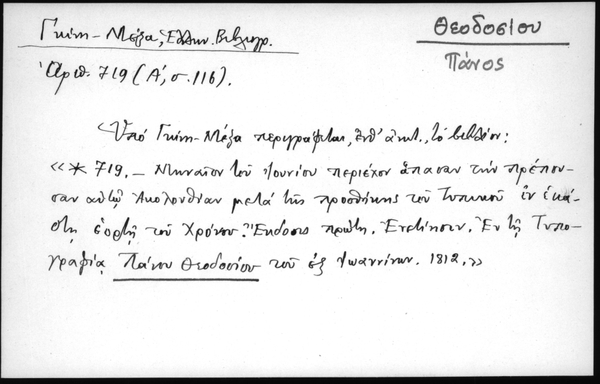 Γκίνη - Μέξα, Ἑλλην. Βιβλιογρ.
Θεοδοσίου
Πάνος
Ἀριθ. 719 (Α΄, σ. 116).
Ὑπό Γκίνη - Μέξα περιγράφεται, ὑπ' ἀριθ., τό βιβλίον:
«* 719. — Μηναῖον τοῦ Ἰουνίου περιέχον ἅπασαν τὴν πρέπου-
σαν αὐτῷ Ἀκολουθίαν μετά τῆς προσθήκης τοῦ Τυπικοῦ ἐν ἑκά-
στῃ ἑορτῇ τοῦ Χρόνου. Ἔκδοσις πρώτη. Ἐνετίησιν. Ἐν τῇ Τυπο-
γραφίᾳ Πάνου Θεοδοσίου τοῦ ἐξ Ἰωαννίνων. 1812.»